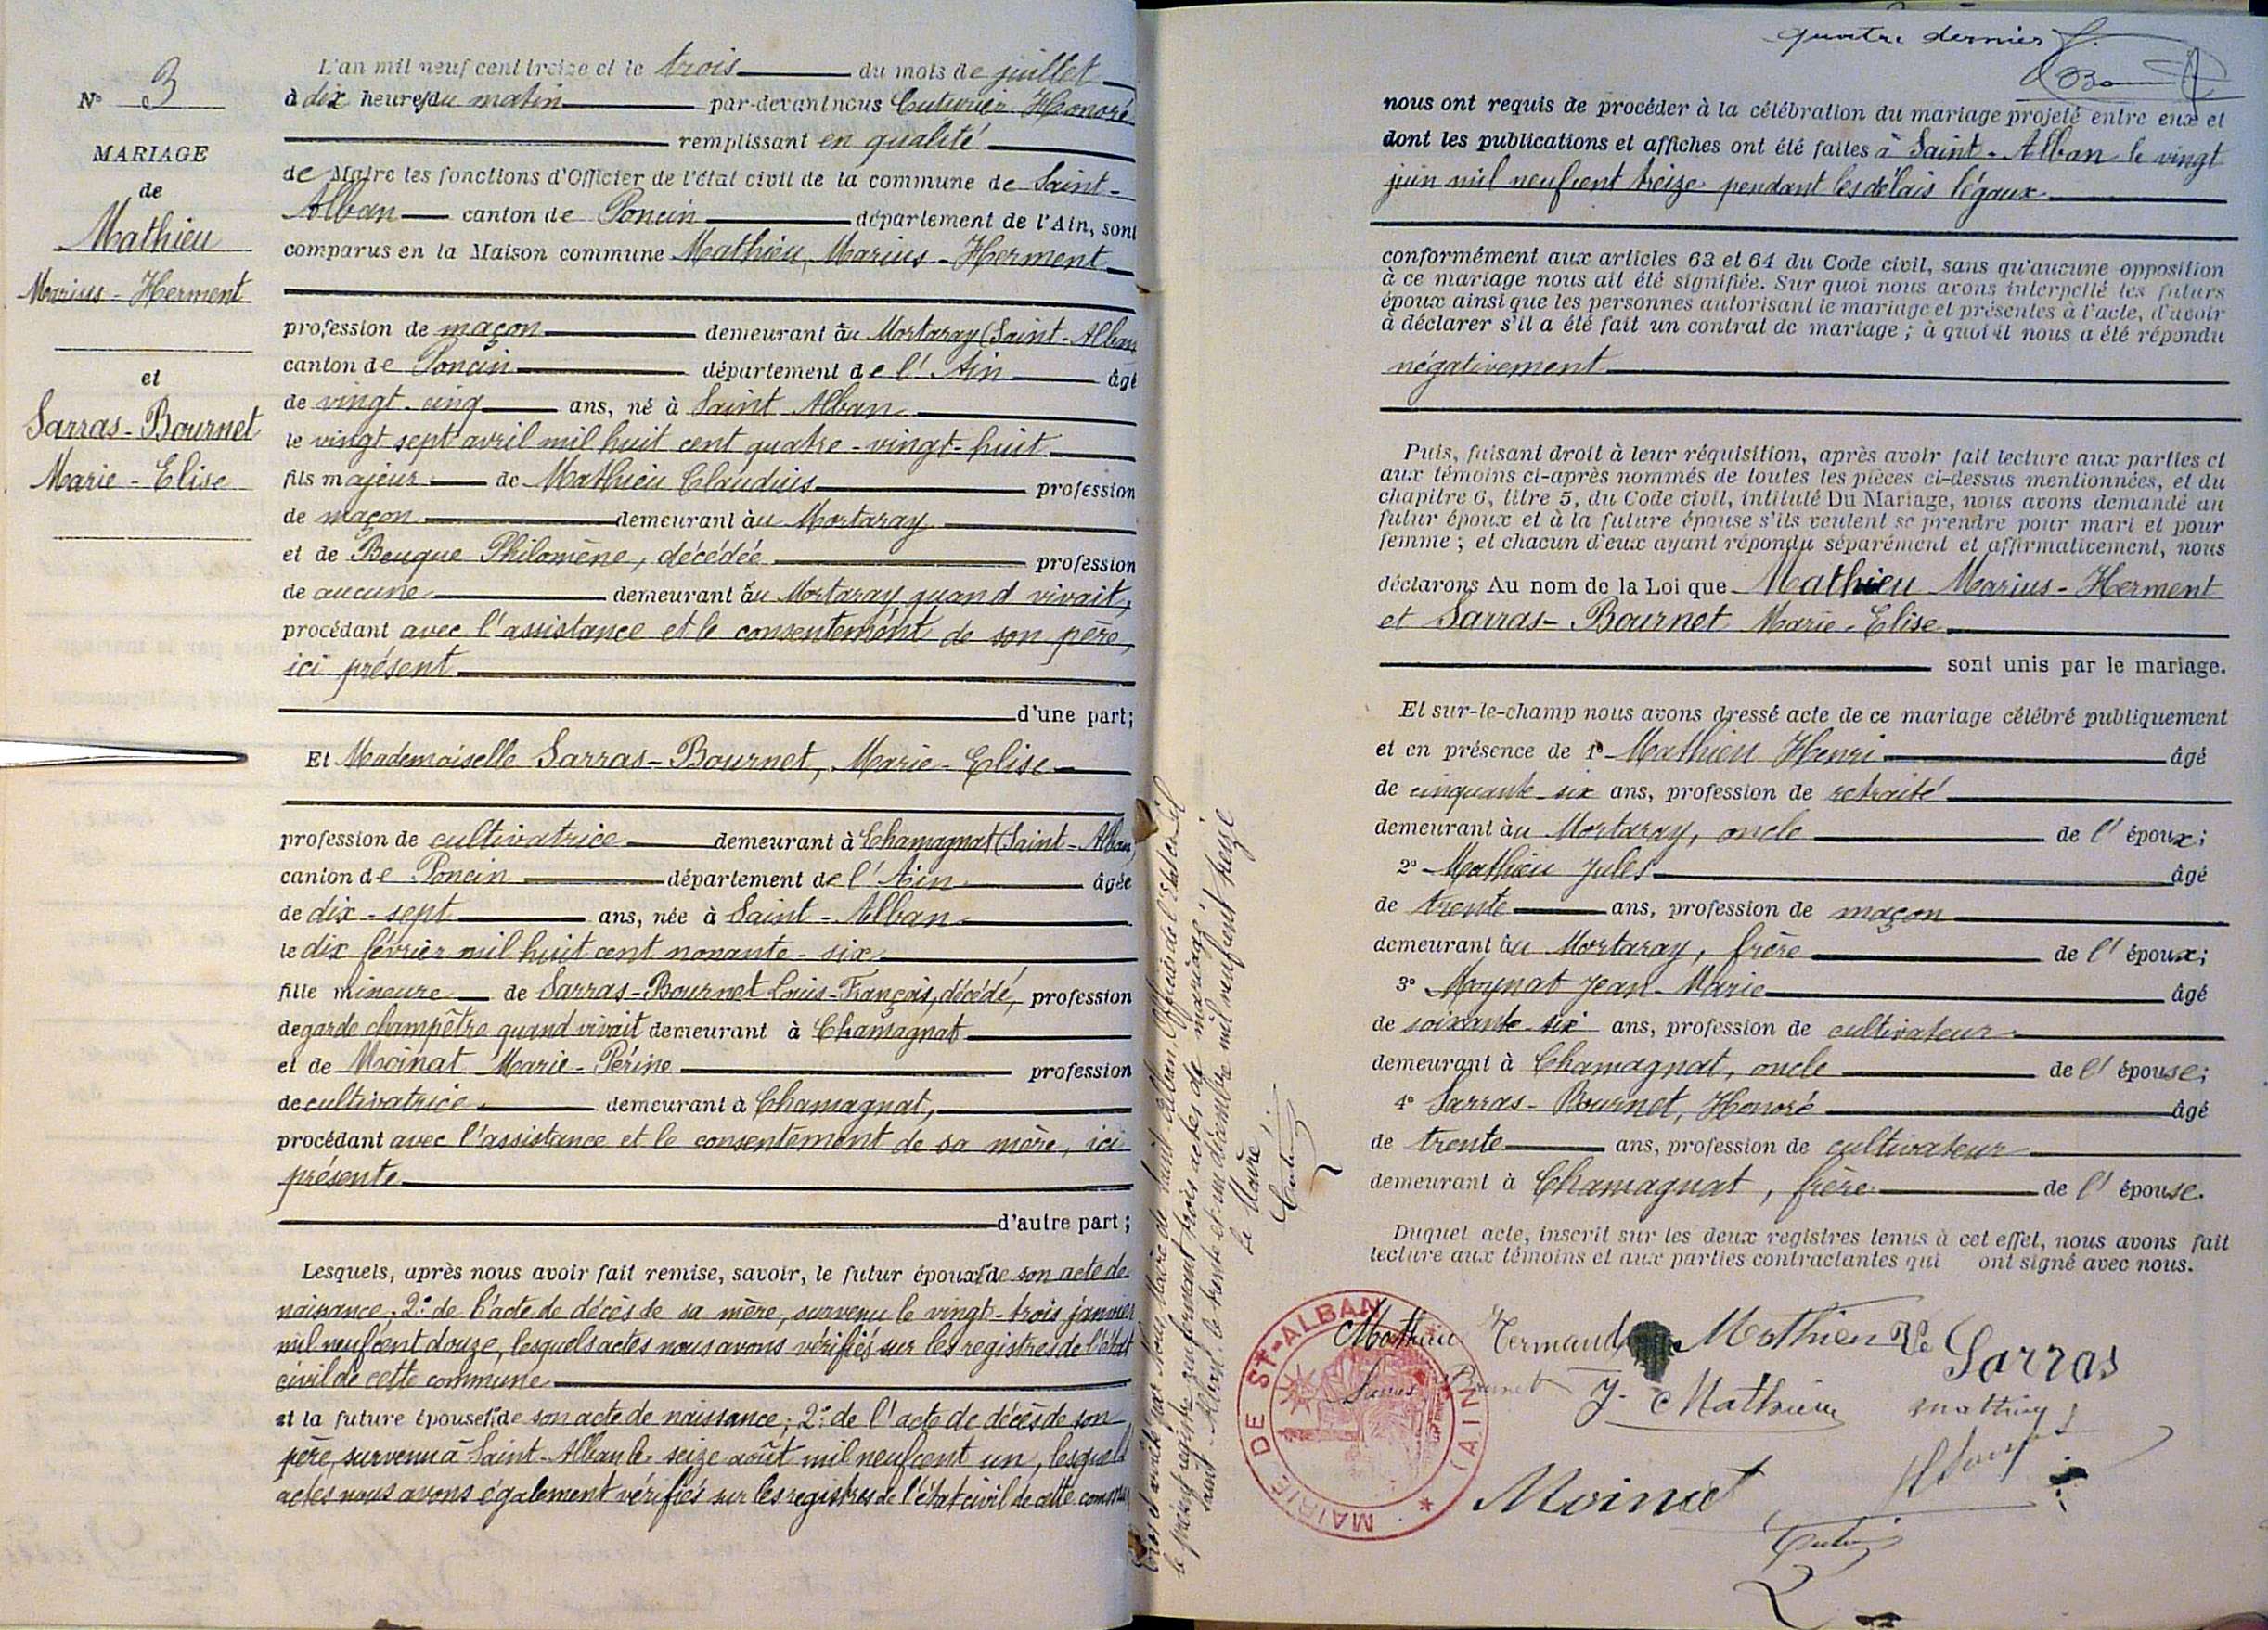 N° 3
MARIAGE
de
Mathieu
Marius-Herment
et
Sarras-Bournet
Marie-Elise
L'an mil neuf cent treize et le trois du mois de juillet
à dix heures du matin par-devant nous Cuturier Honoré
remplissant en qualité
de Maire les fonctions d'Officier de l'état civil de la commune de Saint-
Alban canton de Poncin département de l'Ain, sont
comparus en la Maison commune Mathieu, Marius-Herment
profession de maçon demeurant au Mortaray (Saint-Alban
canton de Poncin département de l'Ain âgé
de vingt-cinq ans, né à Saint Alban
le vingt sept avril mil huit cent quatre-vingt-huit
fils majeur de Mathieu Claudius profession
de maçon demeurant au Mortaray
et de Bouque Philomène, décédée profession
de aucune demeurant au Mortaray quand vivait,
procédant avec l'assistance et le consentement de son père,
ici présent
d'une part;
Et Mademoiselle Sarras-Bournet, Marie-Elise
profession de cultivatrice demeurant à Chamagnat (Saint-Alban)
canton de Poncin département de l'Ain âgée
de dix-sept ans, née à Saint-Alban
le dix février mil huit cent nonante-six
fille mineure de Sarras-Bournet Louis-François, décédé, profession
de garde champêtre quand vivait demeurant à Chamagnat
et de Moinat Marie-Périne profession
de cultivatrice demeurant à Chamagnat,
procédant avec l'assistance et le consentement de sa mère, ici
présente
d'autre part;
Lesquels, après nous avoir fait remise, savoir, le futur époux 1° de son acte de
naissance; 2° de l'acte de décès de sa mère, survenu le vingt-trois janvier
mil neuf cent douze, lesquels actes nous avons vérifiés sur les registres de l'état
civil de cette commune
et la future épouse 1° de son acte de naissance; 2° de l'acte de décès de son
père, survenu à Saint-Alban le seize août mil neuf cent un, lesquels
actes nous avons également vérifiés sur les registres de l'état civil de cette commune
Clos et arrêté par Nous, Maire de Saint-Alban Officier de l'état civil
le présent registre renfermant trois actes de mariage;
Saint-Alban, le trente et un décembre mil neuf cent treize
Le Maire;
quatre dernier f.
nous ont requis de procéder à la célébration du mariage projeté entre eux et
dont les publications et affiches ont été faites à Saint-Alban le vingt
juin mil neuf cent treize pendant les délais légaux
conformément aux articles 63 et 64 du Code civil, sans qu'aucune opposition
à ce mariage nous ait été signifiée. Sur quoi nous avons interpellé les futurs
époux ainsi que les personnes autorisant le mariage et présentes à l'acte, d'avoir
à déclarer s'il a été fait un contrat de mariage; à quoi il nous a été répondu
négativement
Puis, faisant droit à leur réquisition, après avoir fait lecture aux parties et
aux témoins ci-après nommés de toutes les pièces ci-dessus mentionnées, et du
chapitre 6, titre 5, du Code civil, intitulé Du Mariage, nous avons demandé au
futur époux et à la future épouse s'ils veulent se prendre pour mari et pour
femme; et chacun d'eux ayant répondu séparément et affirmativement, nous
déclarons Au nom de la Loi que Mathieu Marius-Herment
et Sarras-Bournet Marie-Elise
sont unis par le mariage.
Et sur-le-champ nous avons dressé acte de ce mariage célébré publiquement
et en présence de 1° Mathieu Henri âgé
de cinquante-six ans, profession de retraité
demeurant au Mortaray, oncle de l'époux;
2° Mathieu Jules âgé
de trente ans, profession de maçon
demeurant au Mortaray, frère de l'époux;
3° Moynat Jean-Marie âgé
de soixante-six ans, profession de cultivateur
demeurant à Chamagnat, oncle de l'épouse;
4° Sarras-Bournet, Honoré âgé
de trente ans, profession de cultivateur
demeurant à Chamagnat, frère de l'épouse.
Duquel acte, inscrit sur les deux registres tenus à cet effet, nous avons fait
lecture aux témoins et aux parties contractantes qui ont signé avec nous.
MAIRIE DE ST-ALBAN (AIN)
Mathieu Hermand Mathieu Ve Sarras
Sarras Bournet J. Mathieu mathieu
Moinat